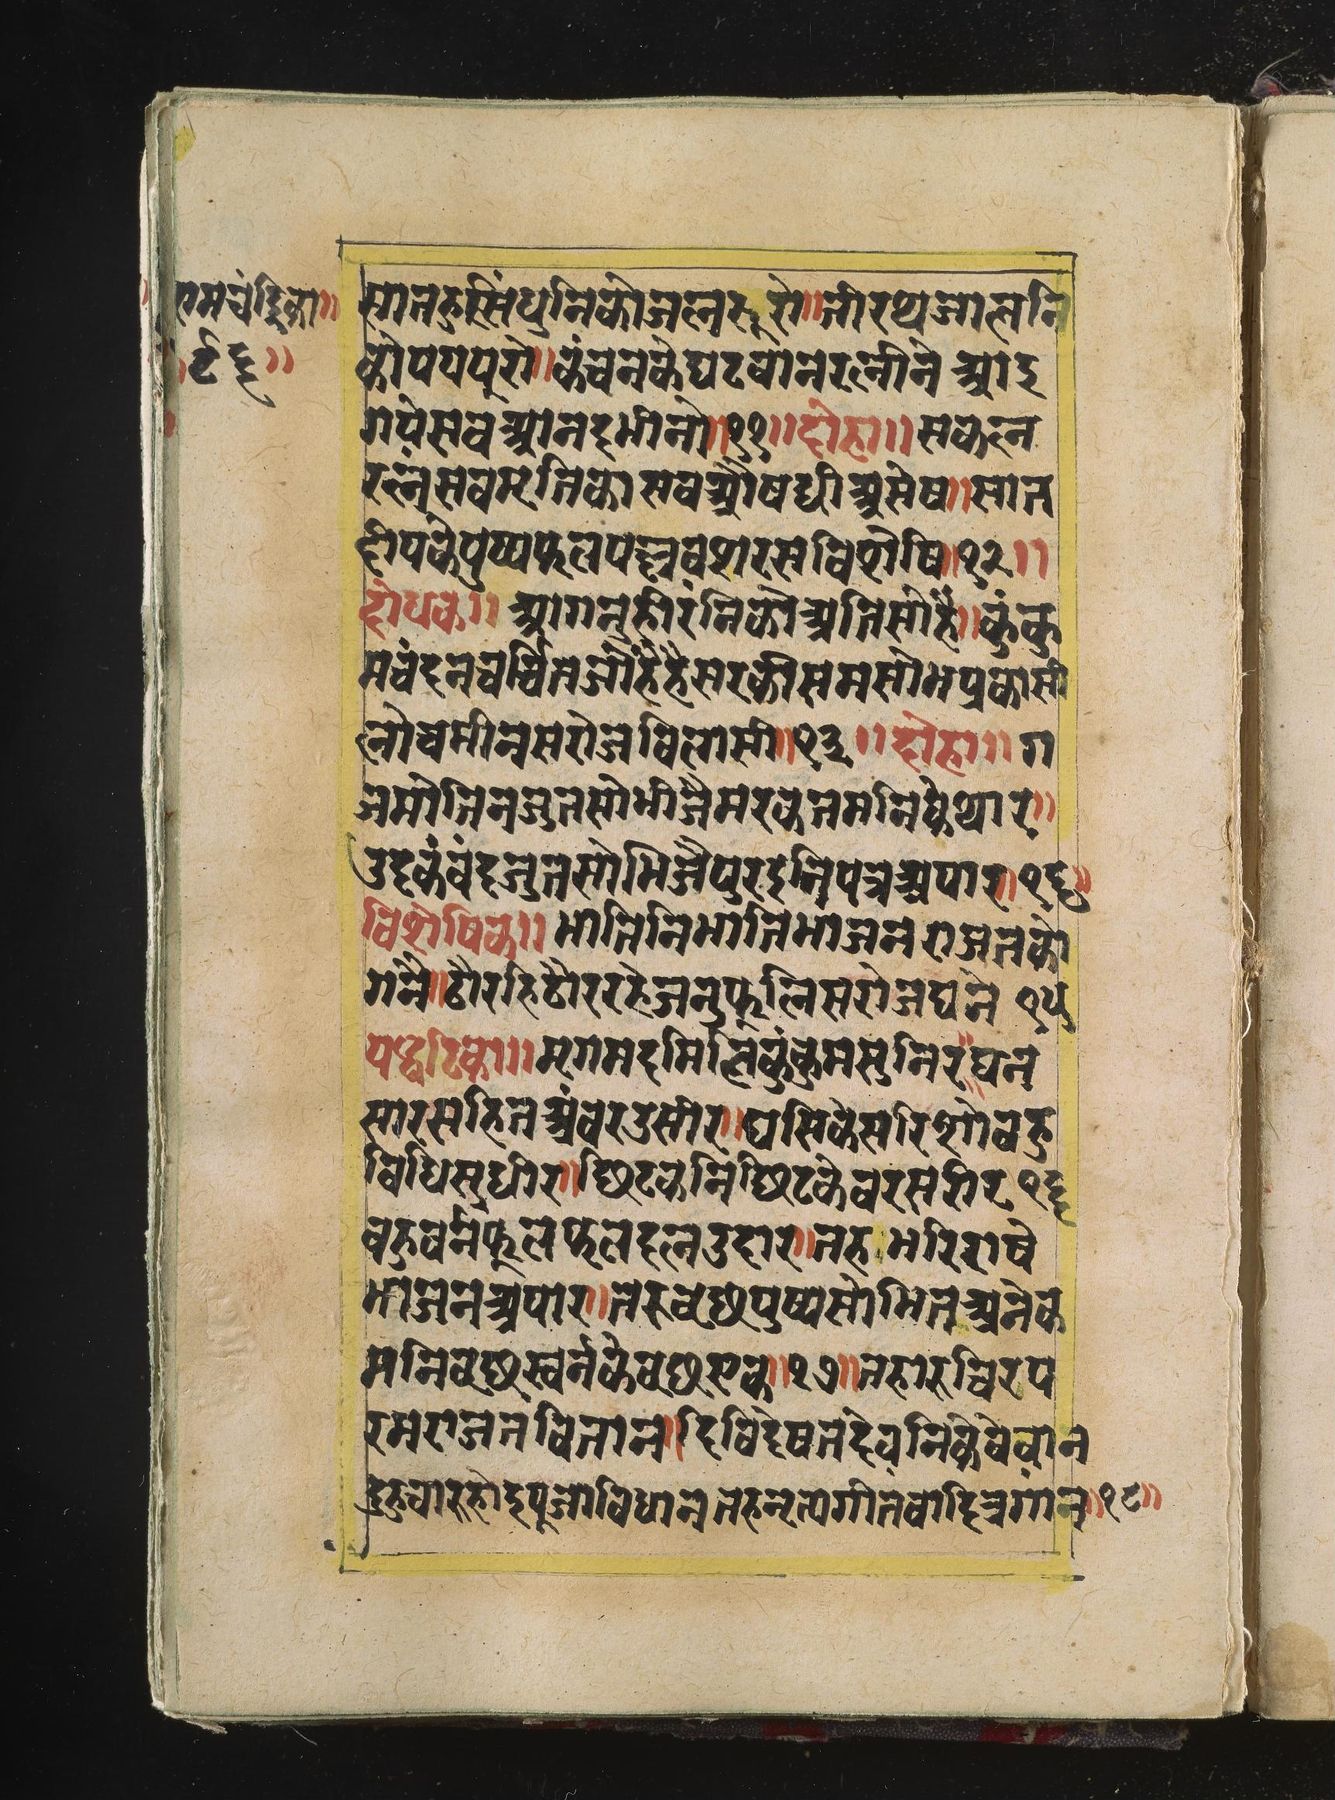 रामचंद्रिका॥
९६॥
सातहुसिंधुनिकोजलरूरो॥तीरथजालनि
कोपयपूरो॥कंचनकेघटवानरलीने आइ
गयेसबआनदभीनो॥११॥दोहा॥सकल
रत्नसबमृतिकासबऔषधीअसेष॥सात
दीपकेपुष्पफलपल्लवशरसविशेषि॥१२॥
दोधक॥ आगनहीरंनिकोअतिसोहै॥कुंकु
मचंदनचर्चितजोहैहैसरकीसमसोभप्रकासी
लोचमीनसरोजविलासी॥१३॥दोहा॥ग
जमोतिनजुतसोभीजैमरकतमनिकेथार॥
उदकंबंदजुतसोभिजैपुरइनिपत्रअपार॥१४॥
विशेषिक॥भातिनिभातिभाजनराजतको
गनै॥ठौरहिठौररहेजनुफूलिसरोजघने १५
पद्धटिका॥मृगमदमिलिकुंकुमसुनिरघन
सारसहितअंबरउसीर॥घसिकेसरिशोबहु
बिधिसुधीर॥छिटकनिछिटकेवरसरीर १६
बहुवर्नफूलफलदलउदार॥तह भरिराषे
भाजनअपार॥तरुवृछपुष्पसोभितअनेक
मनिवृछस्वर्नकेवृछएक॥१७॥तहारुचिरप
रमराजतवितान॥दिविदेषतदेवनिकेबेवान
दुहुवारहोइपूजाविधाननतहनृत्यगीतवादित्रगान॥१८॥